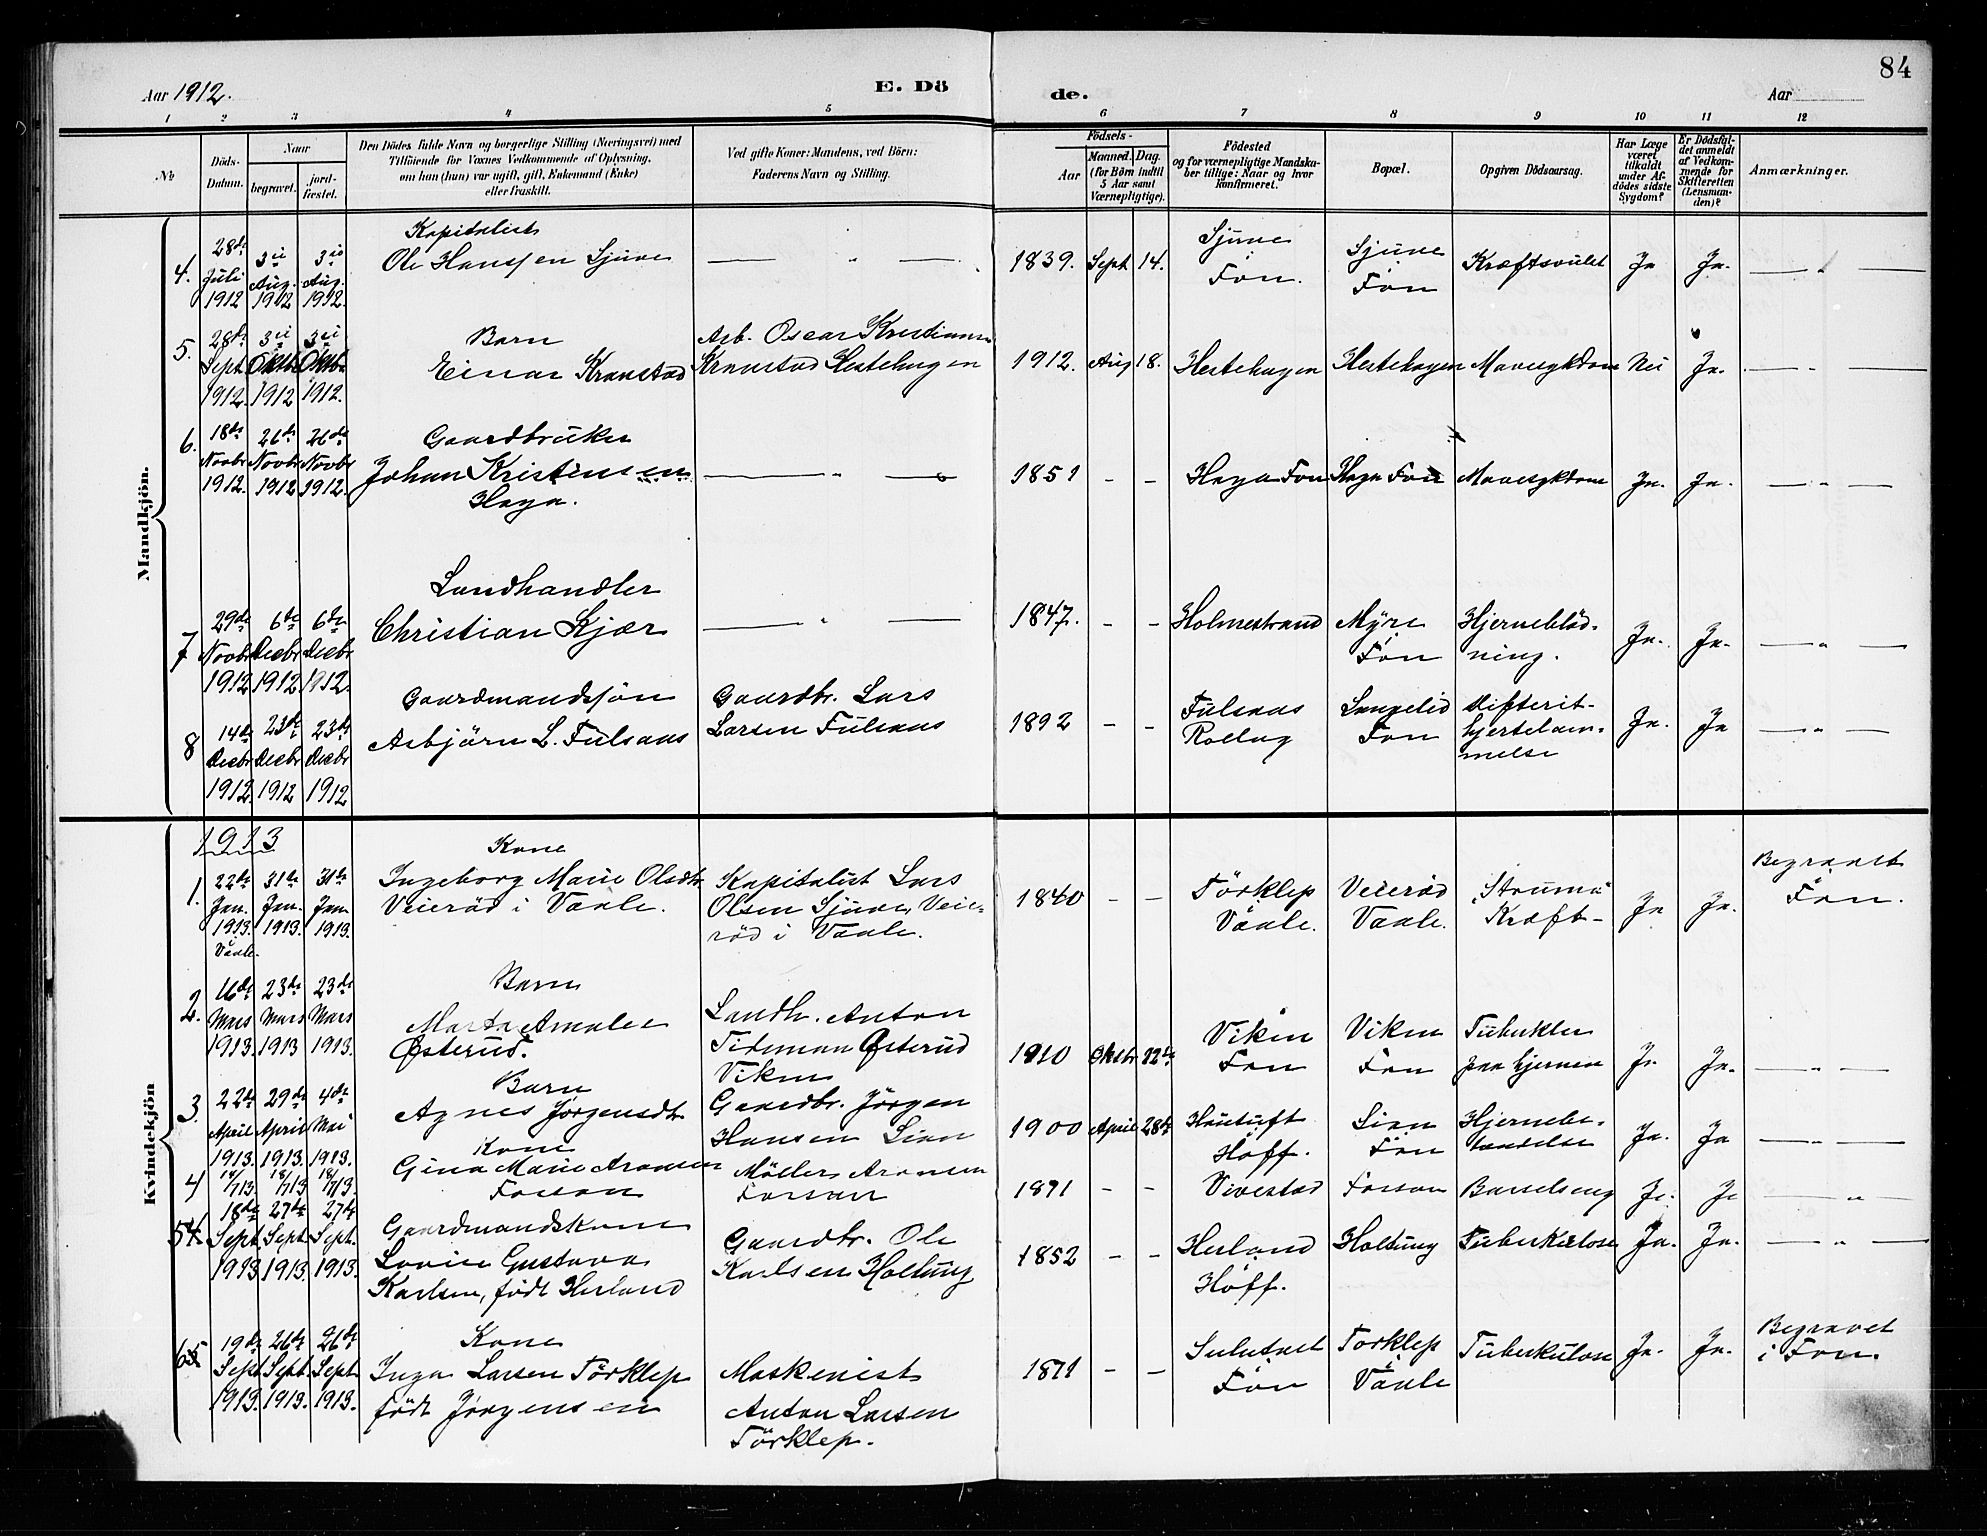 84
Aar 1912.
E. Döde.
Aar
1 2 3 4 5 6 7 8 9 10 11 12
№
Döds-
Datum.
Naar
begravet.
jord-
fæstet.
Den Dödes fulde Navn og borgerlige Stilling (Næringsvei) med
Tilföiende for Voxnes Vedkommende af Oplysning,
om han (hun) var ugift, gift, Enkemand (Enke)
eller fraskilt.
Ved gifte Koner: Mandens, ved Börn:
Faderens Navn og Stilling.
Födsels-
Aar
Maaned. Dag.
(for Börn indtil
5 Aar samt
Værnepligtige).
Födested
og for værnepligtige Mandska-
ber tillige: Naar og hvor
konfirmeret.
Bopæl.
Opgiven Dödsaarsag.
Har Læge
været
tilkaldt
under Af-
dödes sidste
Sygdom?
Er Dödsfal-
det anmeldt
af Vedkom-
mende for
Skifteretten
(Lensman-
den)?
Anmærkninger.
Mandkjön.
4.
28de Juli 1912
3die Aug. 1912
3die Aug. 1912.
Kapitalist
Ole Hanssen Sjuve
— " —
1839. Sept 14.
Sjuve
Fön.
Sjuve
Fön
Kræftsvulst
Ja
Ja.
— " —
5.
28de Sept 1912.
3die Oktbr 1912
3die Oktbr 1912.
Barn
Einar Kronstad
Arb. Oscar Kristiansen
Kronstad Hestehagen
1912. Aug 18.
Hestehagen
Hestehagen
Mavesykdom
Nei
Ja.
— " —
6.
18de Novbr 1912.
26de Novbr 1912
26de Novbr 1912.
Gaardbruker
Johan Kristensen
Haga.
— " —
1851 - -
Haga Fon
Haga Fon
Mavesykdom
Ja.
Ja.
— " —
7
29de Novbr 1912
6te Decbr 1912
6te Decbr 1912.
Landhandler
Christian Kjær
— " —
1847. - -
Holmestrand
Myre
Fon
Hjerneblöd-
ning.
Ja.
Ja.
— " —
8
14de Decbr 1912
23de Decbr 1912
23de Decbr 1912
Gaardmandssön
Asbjörn L. Fulsaas
Gaardbr. Lars
Larsen Fulsaas
1892 - -
Fulsaas
Rollag
Langelid
Fon
Difterit-
hjertelam-
melse
Ja.
Ja
— " —
Kvindekjön
1913
1.
22de Jan. 1913. Vaale.
31te Jan. 1913.
31te Jan 1913.
Kone
Ingeborg Marie Olsdtr
Veieröd i Vaale.
Kapitalist Lars
Olsen Sjuve, Veie-
röd i Vaale.
1840 - -
Törklep
Vaale.
Veieröd
Vaale.
Struma
Kræft-
Ja
Ja.
Begravet
Fon.
2.
16de Mars 1913.
23de Mars 1913
23de Mars 1913.
Barn
Marta Amalie
Østerud.
Landh. Anton
Tideman Østerud
Viken
1910 Oktbr 22de
Viken
Fon
Viken
Fon
Tuberkler
paa hjernen
Ja.
Ja.
— " —
3.
22de April 1913.
29de April 1913.
4de Mai 1913.
Barn
Agnes Jörgensdtr
Gaardbr. Jörgen
Hansen Lien
1900 April 28de
Hautuft
Höff.
Lien
Fon
Hjernebe-
tændelse
Ja.
Ja
— " —
4
14/713.
18/713
18/713.
Kone
Gina Marie Aronsen
Fossan
Möller Aronsen
Fossan
1871 - -
Vivestad
Fossan
Barselseng
Ja.
Ja
— " —
5
18de Sept. 1913.
27de Sept. 1913.
27de Sept. 1913.
Gaardmandskone
Lovise Gustava
Karlsen, födt Herland
Gaardbr. Ole
Karlsen Holtung
1852 - -
Herland
Höff.
Holtung
Tuberkulose
Ja.
Ja.
— " —
6
19de Sept. 1913.
26de Sept. 1913.
26de Sept. 1913.
Kone
Inga Larsen Törklep
födt Jörgensen
Maskenist
Anton Larsen
Törklep.
1871 - -
Fön
Torklep
Vaale
Tuberkulose
Ja.
Ja.
Begravet
i Fon.